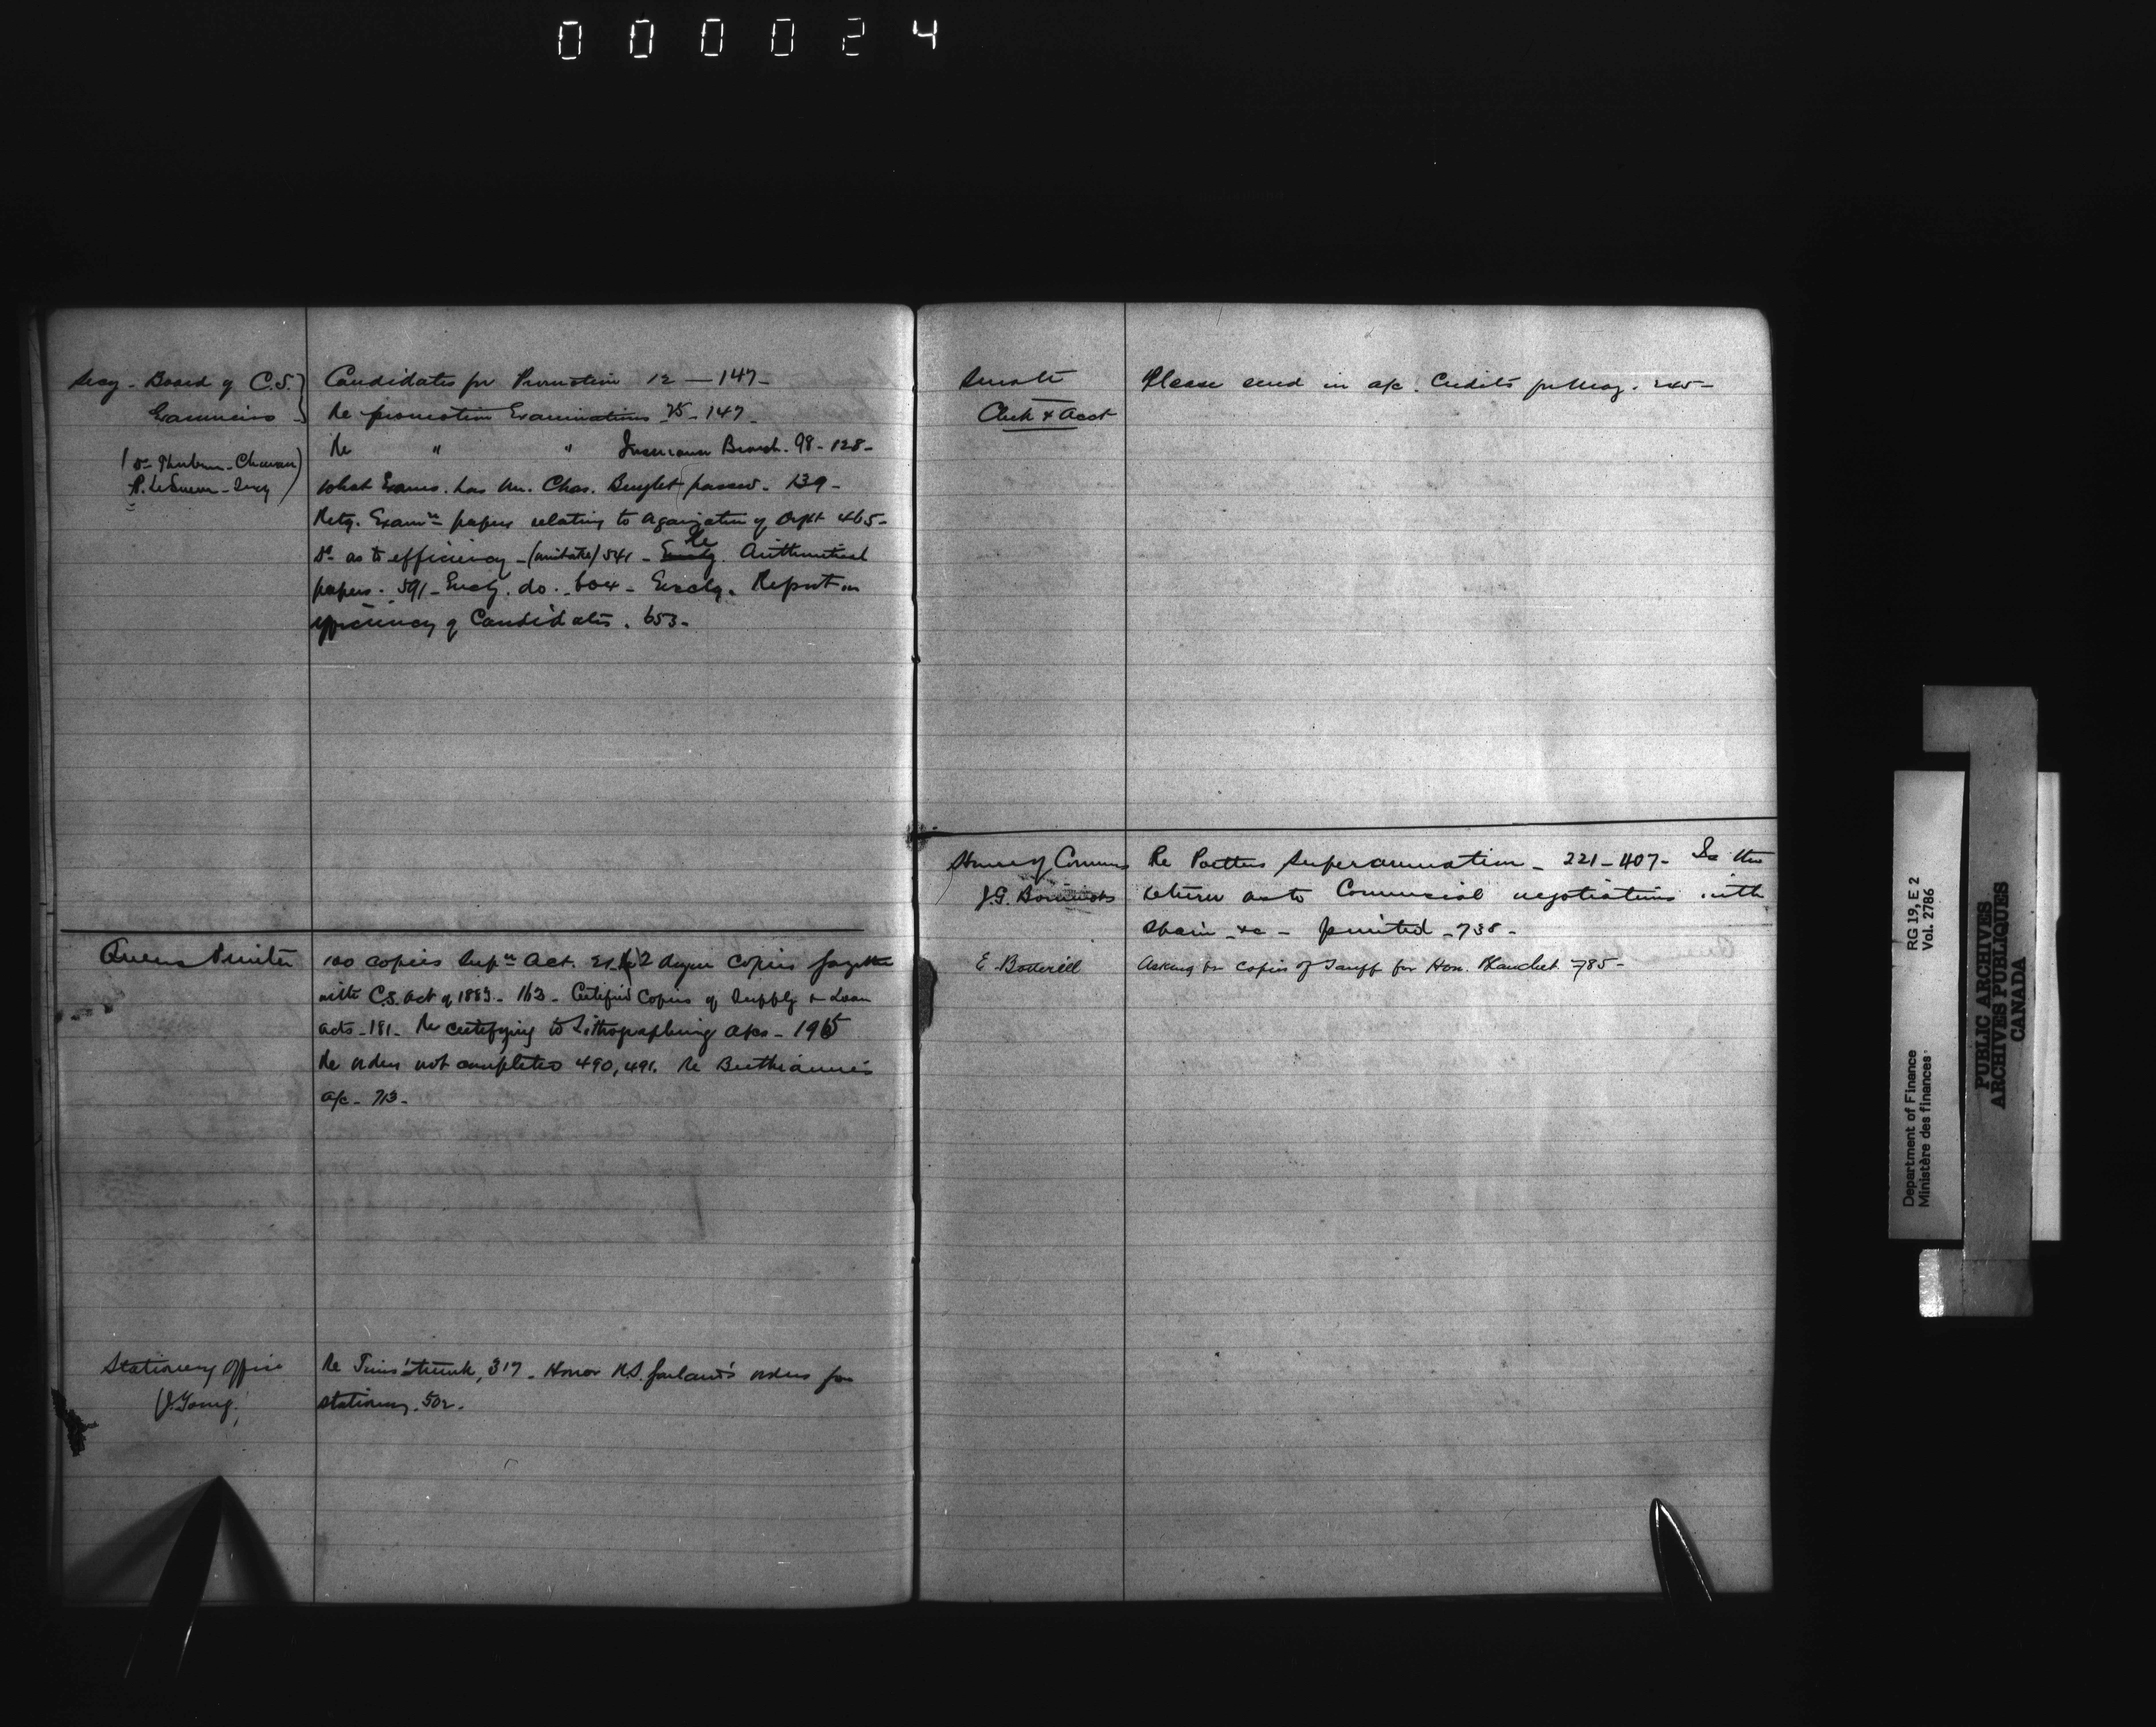 000024
Secy - Board of C.S.
Examiners
(Dr Thorburn - Chairman)
P. LeSueur - Secy
Candidates for Promotion 12 — 147 -
Re promotion Examinations 75 - 147 -
Re " " Insurance Branch. 98 - 128 -
What Exams. has Mr. Chas. passed. 139 -
Retg. Examn papers relating to Organization of Dept 465 -
Do as to efficiency - 541 - Arithmetical
papers. 591 - Encg. do. 604 - Enclg. Report on
efficiency of Candidates. 653 -
Queens Printer
100 copies Supn Act. 21, 2 dozen copies together
with C.S. Act of 1883 - 163 - Certified Copies of Supply & Loan
acts - 181 - Re certifying to Lithographing a/cs - 195
Re orders not completed 490, 491. Re Berthiaume's
a/c - 713 -
Stationery Office
(J. Young)
Re trunk, 317 - Honor N.S. Garland's orders for
stationery. 502.
Senate
Clerk & Acct
Please send in a/c. Credits for May. 245 -
House of Commons
J.G. Bourinot
Re Superannuation - 221 - 407 - Is the
return as to Commercial negotiations with
Spain &c - printed - 738 -
E. Botterell
Asking for copies of Tariff for Hon. Blanchet 785 -
Department of Finance
Ministère des finances
RG 19, E 2
Vol. 2786
PUBLIC ARCHIVES
ARCHIVES PUBLIQUES
CANADA